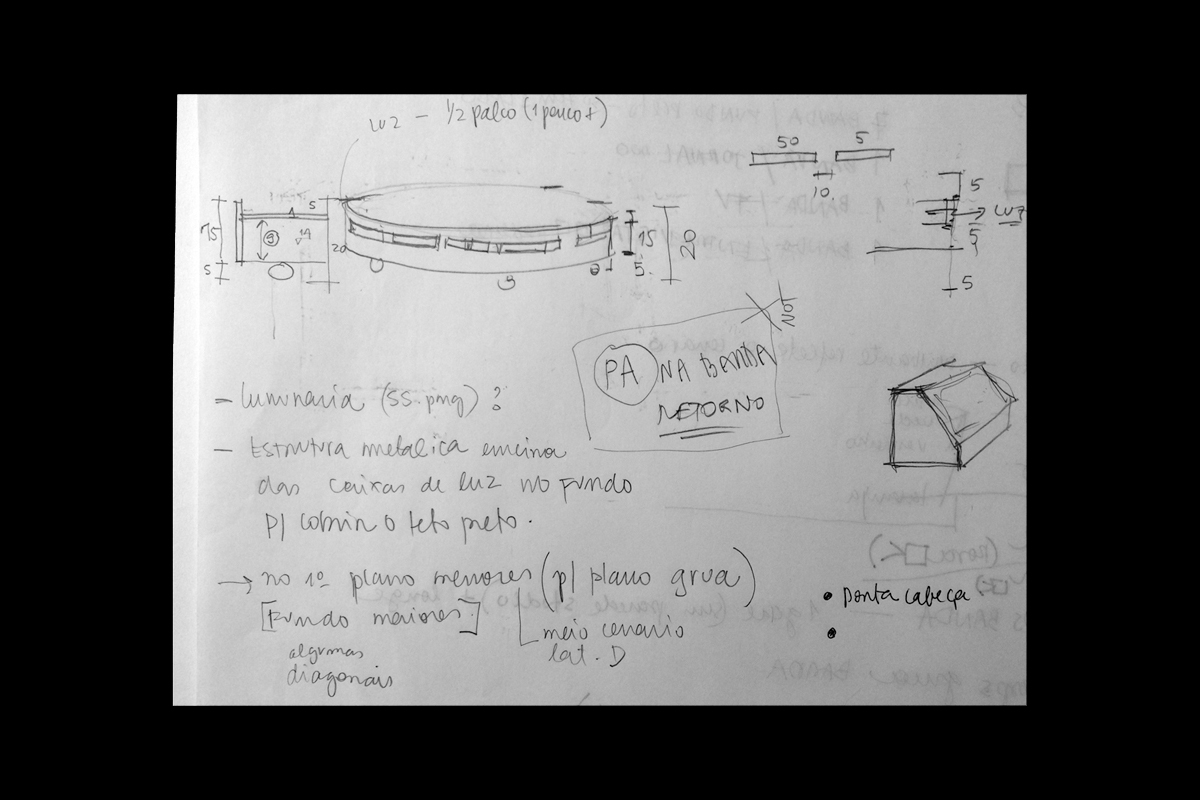 LUZ – 1/2 palco (1 pouco +)
50
5
10
5
LUZ
5
5
15
5
5
20
15
5
20
PA NA BANDA
RETORNO
– Luminaria (SS pmg) ?
– Estrutura metalica emcima
das caixas de luz no fundo
p/ cobrir o teto preto.
→ no 1º plano menores (p/ plano grua)
[Fundo maiores]
meio cenario
lat. D
algumas
diagonais
• ponta cabeça
•